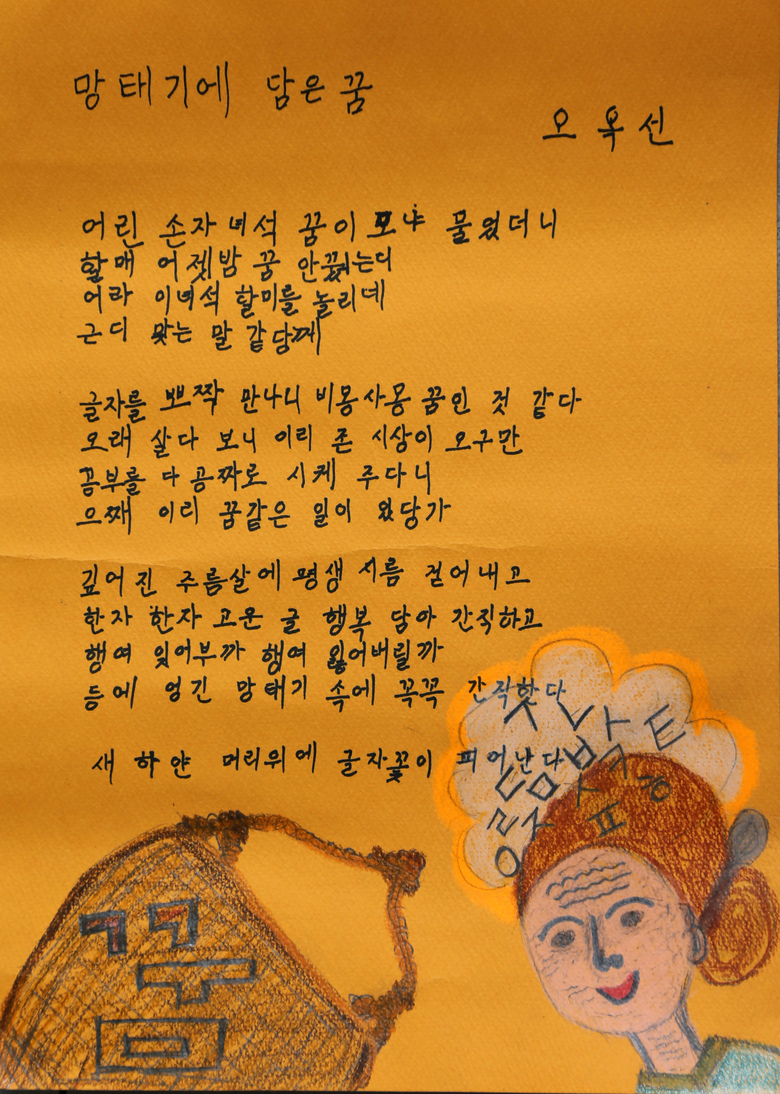 망태기에 담은 꿈
오옥선
어린 손자 녀석 꿈이 모냐 물었더니
할매 어젯밤 꿈 안꿨는디
어라 이녀석 할미를 놀리데
근디 맞는 말 같당께
글자를 뽀짝 만나니 비몽사몽 꿈인 것 같다
오래 살다 보니 이리 존 시상이 오구만
꽁부를 다 공짜로 시케 주다니
으째 이리 꿈같은 일이 왔당가
깊어진 주름살에 평생 시름 걷어내고
한자 한자 고운 글 행복 담아 간직하고
행여 잊어부까 행여 잃어버릴까
등에 엉긴 망태기 속에 꼭꼭 간직한다
새 하얀 머리위에 글자꽃이 피어난다
꿈